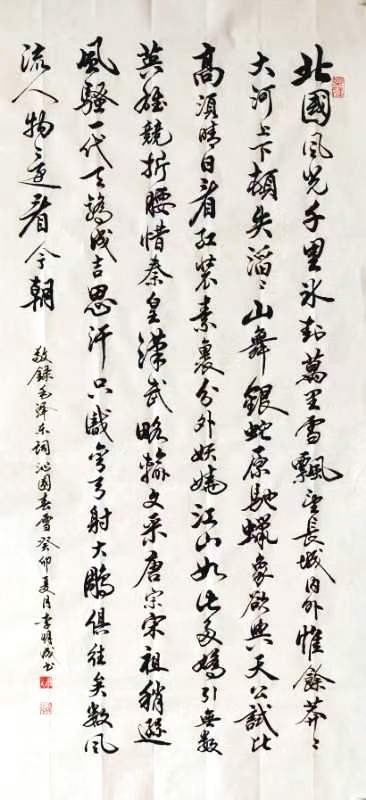 北國风光千里冰封萬里雪飄望長城內外惟餘莽〻
大河上下頓失滔〻山舞銀蛇原馳蠟象欲與天公試比
高須晴日看紅裝素裹分外妖嬈江山如此多嬌引無數
英雄競折腰惜秦皇漢武略輸文采唐宗宋祖稍遜
風騷一代天驕成吉思汗只識彎弓射大鵰俱往矣數风
流人物還看今朝
敬錄毛澤东詞沁園春雪癸卯夏月李明成书